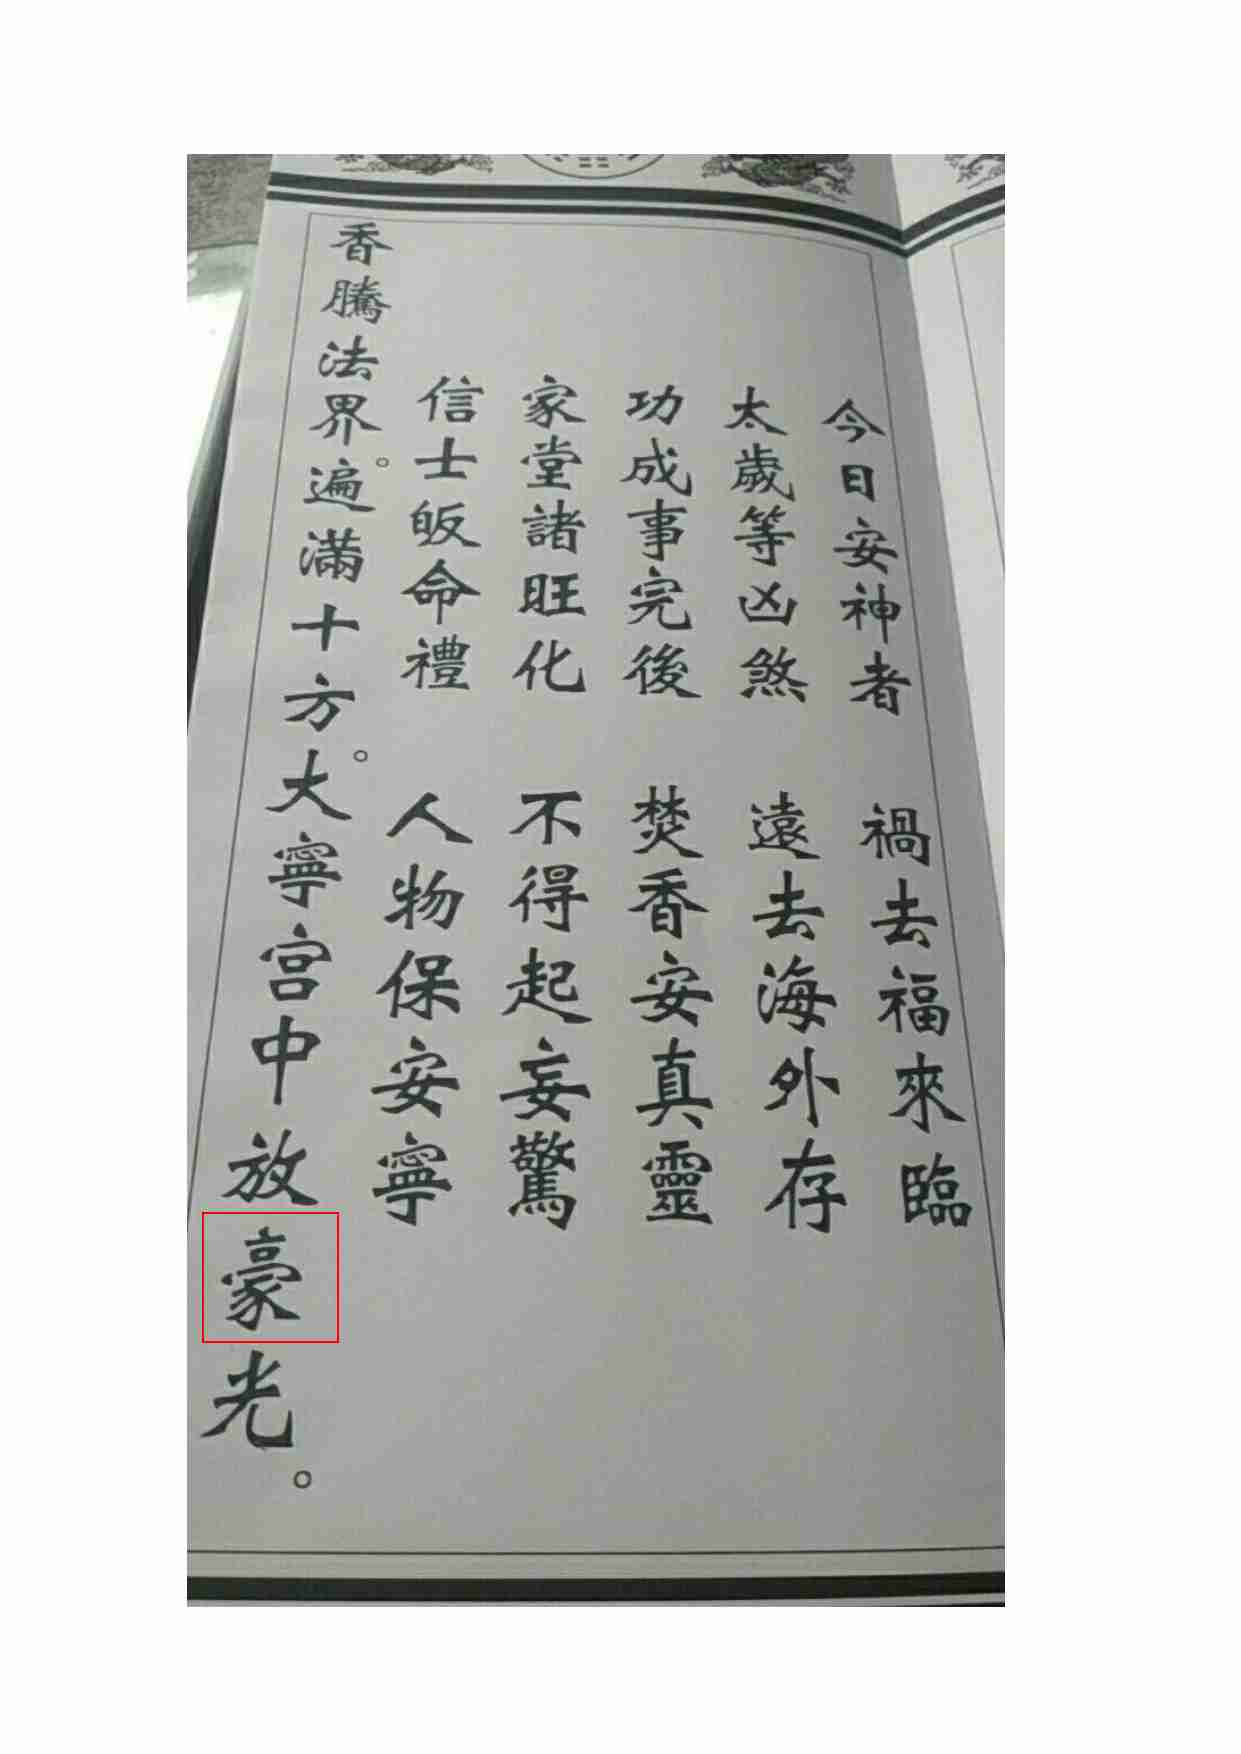 今日安神者 禍去福來臨
太歲等凶煞 遠去海外存
功成事完後 焚香安真靈
家堂諸旺化 不得起妄驚
信士皈命禮 人物保安寧
香騰法界。遍滿十方。大寧宮中放豪光。